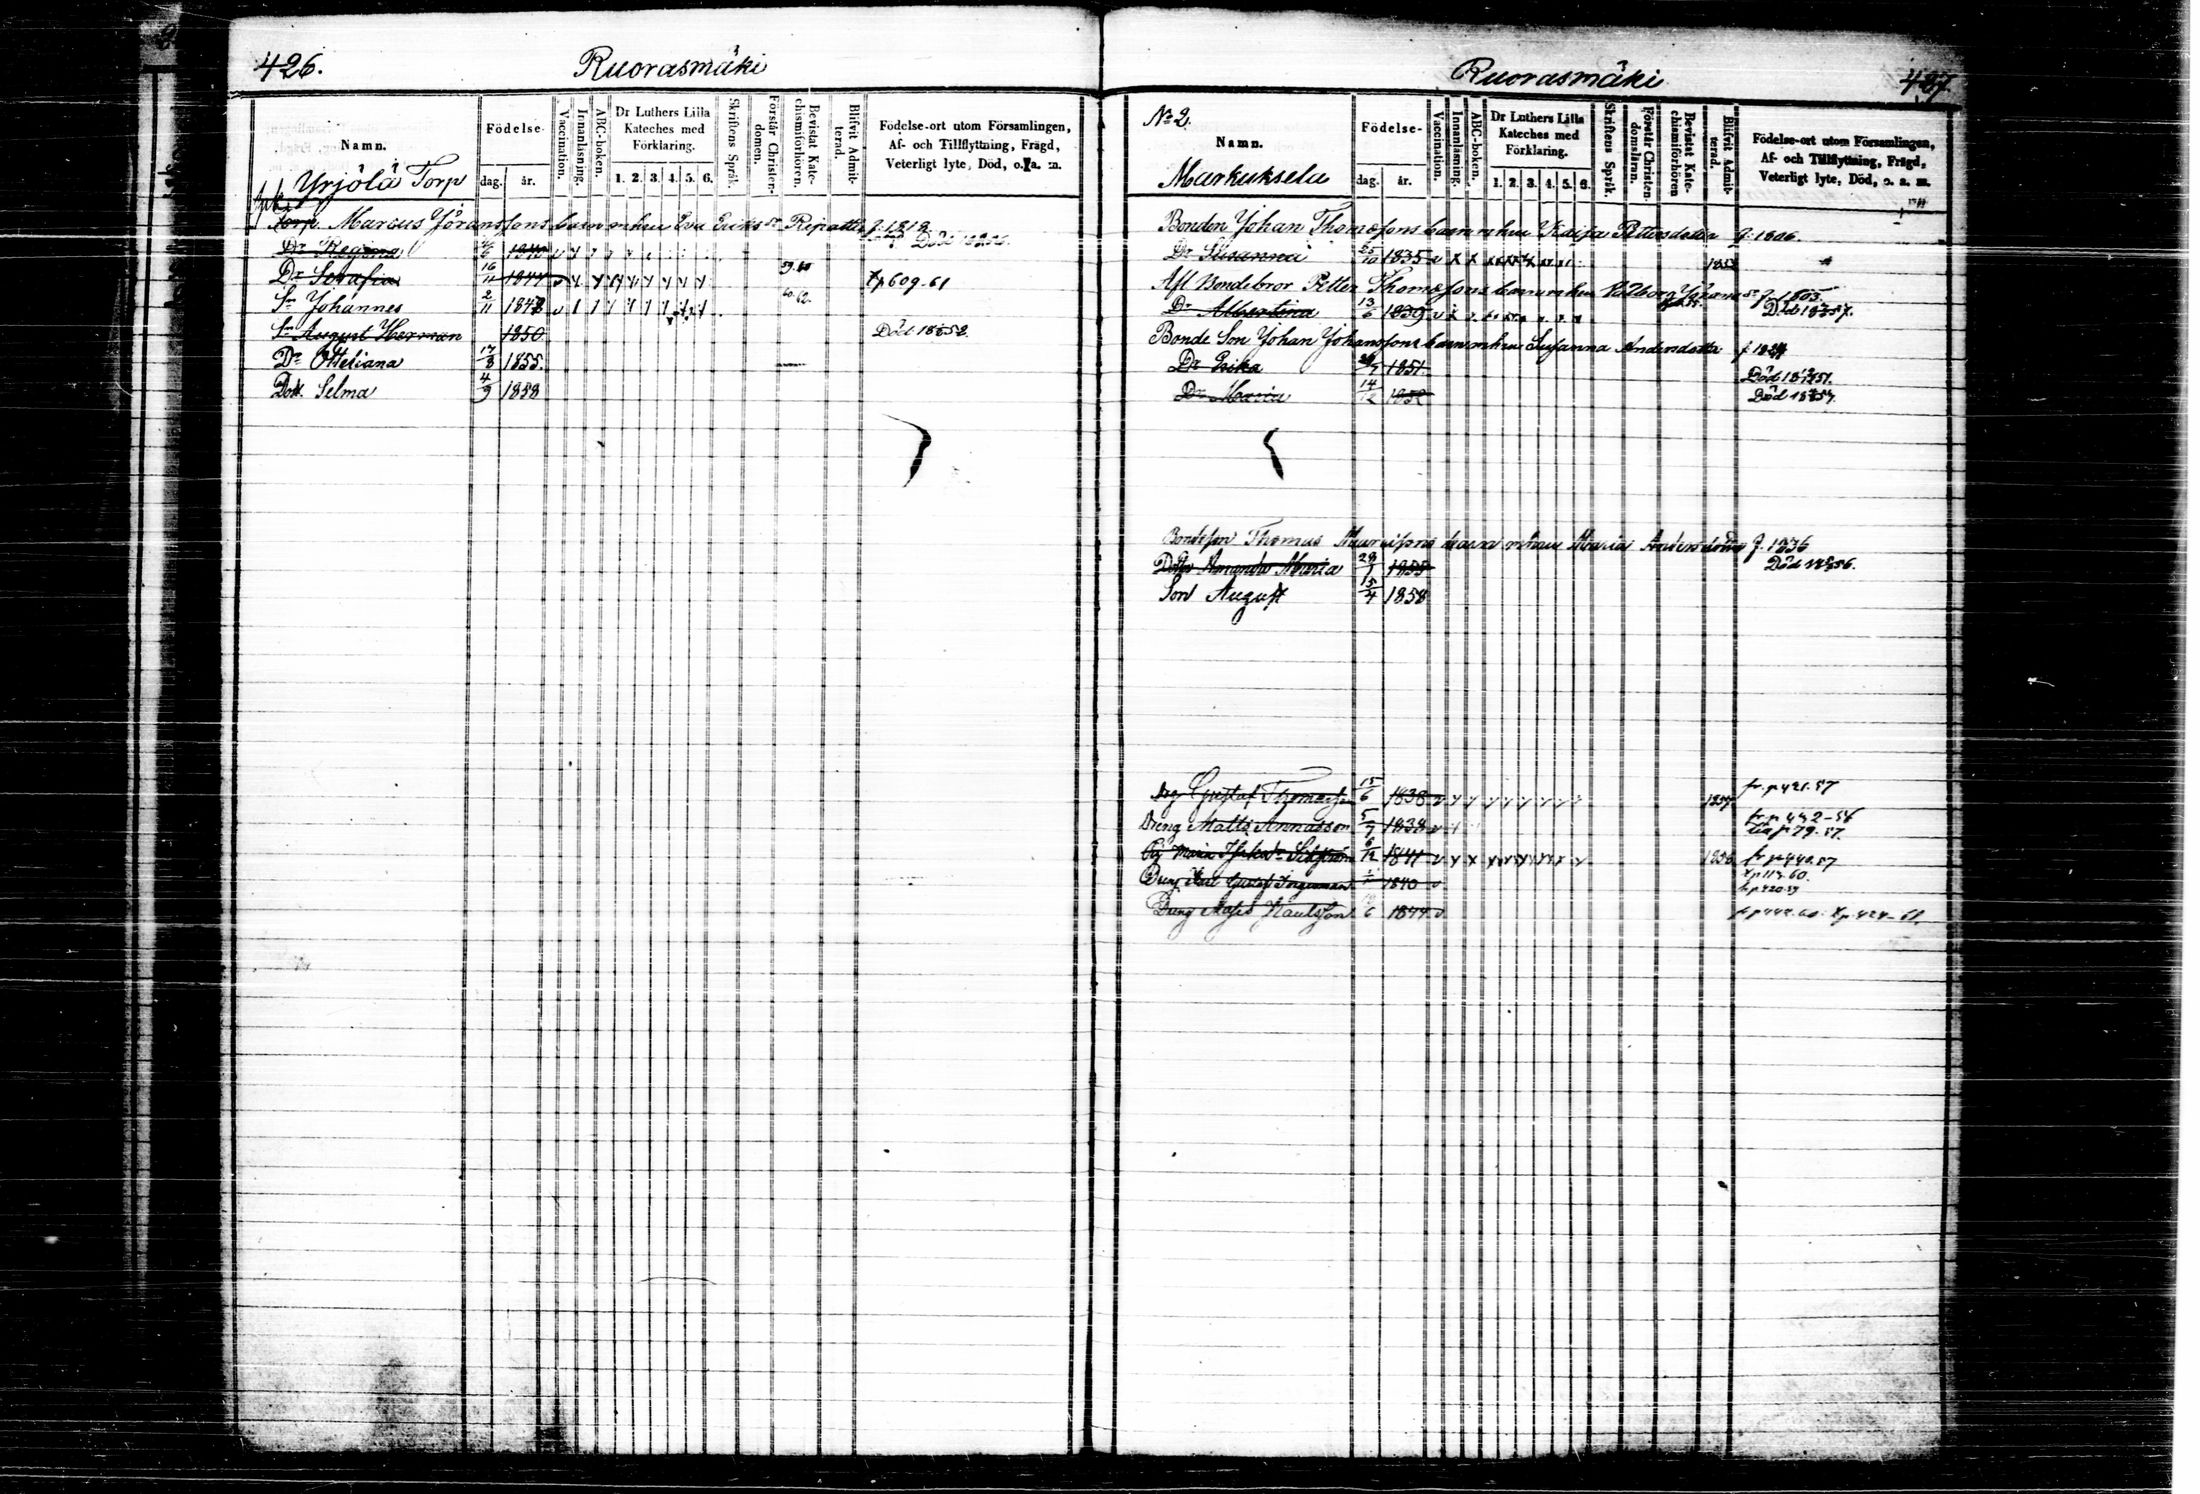 426.
Ruorasmäki
Namn.
Födelse-
dag. år.
Vaccination.
Innanläsning.
ABC-boken.
Dr Luthers Lilla Kateches med Förklaring.
1. 2. 3. 4. 5. 6.
Skriftens Språk.
Förstår Christendomen.
Bevistat Katechismiförhören.
Blifvit Admitterad.
Födelse-ort utom Församlingen,
Af- och Tillflyttning, Frägd,
Veterligt lyte, Död, o. a. m.
Yrjölä Torp
Torp. Marcus Jöranssons barn m hu Eva Eriksdr Ripatti f. 1812
Dr Regina 1840 Död
Dr Serafia 16/11 1844 59.60 p 609.61
Sn Johannes 2/11 1848 60.62.
Sn August Herman 1850 Död 1852
Dr Otteliana 17/3 1855.
Dott. Selma 4/9 1858
Ruorasmäki
427.
No 2.
Namn.
Markuksela
Födelse-
dag. år.
Vaccination.
Innanläsning.
ABC-boken.
Dr Luthers Lilla Kateches med Förklaring.
1. 2. 3. 4. 5. 6.
Skriftens Språk.
Förstår Christendomsläran.
Bevistat Katechismiförhören
Blifvit Admitterad.
Födelse-ort utom Församlingen,
Af- och Tillflyttning, Frägd,
Veterligt lyte, Död, o. a. m.
Bonden Johan Thomæsons barn m hu Kaisa Pettersdotter f: 1806.
Dr Susanna 25/10 1835
Afl Bondebror Petter Thomæsons barn m hu Valborg f. 1805.
Dr Albertina 13/6 1839 Död 57.
Bonde Son Johan Johanssons barn m hu Susanna Andersdotter
Dr Erika 1851 Död 51.
Dr Maria 14/12 1852 Död
Bondeson Thomas barn m hu Maria Andersdotter f. 1836
Dotter Amanda Maria 28/1 1855 Död 56.
Son August 15/4 1858
Gustaf Thomasson 15/6 1838 fr. p 421.57
Dreng Matts 5/7 1838 fr p 442-56
p 79.57.
Pig Maria 6/12 1841 1856 fr p 440.57
p 113.60.
Dreng Karl Gustaf 1840 fr p 420.59
Dreng Moses Paulsson 1844 fr p 444.60. p. 424-61.